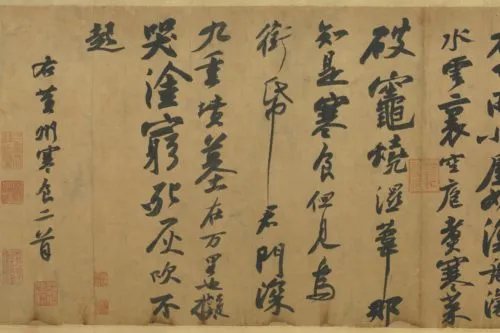 小屋如漁舟濛
水雲裏空庖煮寒菜
破竈燒濕葦那
知是寒食但見烏
銜帋君門深
九重墳墓在万里也擬
哭塗窮死灰吹不
起
右黃州寒食二首